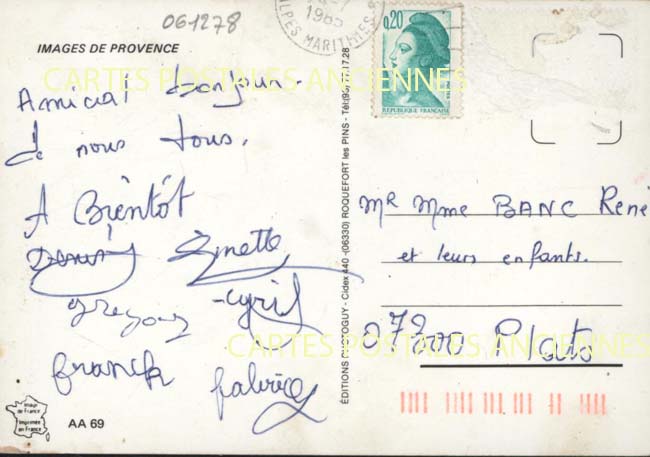 061278
IMAGES DE PROVENCE
CARTES POSTALES ANCIENNES
Amical bonjour
de nous tous.
A Bientôt
Denis Ginette
Gregory Cyril
franck fabrice
AA 69
Image de France
Imprimée en France
ÉDITIONS PHOTOGUY - Cidex 440 - (06330) ROQUEFORT les PINS - Tél. (93) 77.17.28
1985
ALPES MARITIMES
0,20
REPUBLIQUE FRANÇAISE
Mr Mme BANC René
et leurs enfants.
CARTES POSTALES ANCIENNES